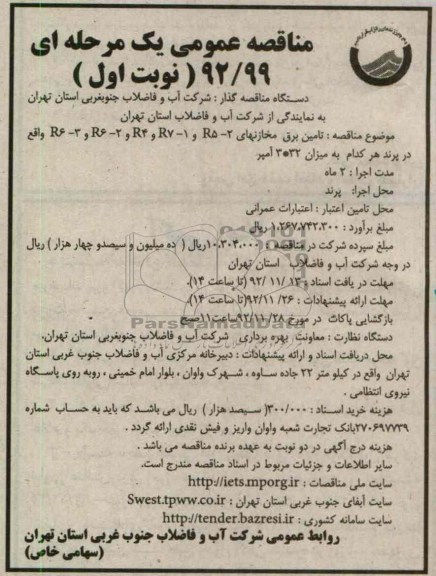 مناقصه عمومی یک مرحله ای
۹۲/۹۹ ( نوبت اول )
دستگاه مناقصه گذار : شرکت آب و فاضلاب جنوبغربی استان تهران
به نمایندگی از شرکت آب و فاضلاب استان تهران
موضوع مناقصه : تامین برق مخازنهای R۵ -۲ و R۷ -۱ و R۴ و R۶ -۲ و R۶ -۳ واقع
در پرند هر کدام به میزان ۳۲*۳ آمپر
مدت اجرا : ۲ ماه
محل اجرا: پرند
محل تامین اعتبار : اعتبارات عمرانی
مبلغ برآورد : ۱،۲۶۷،۷۴۲،۳۰۰ ریال
مبلغ سپرده شرکت در مناقصه : ۱۰،۳۰۴،۰۰۰ریال ( ده میلیون و سیصدو چهار هزار ) ریال
در وجه شرکت آب و فاضلاب استان تهران
مهلت در یافت اسناد : ۱۳ /۱۱/ ۹۲ (تا ساعت ۱۴).
مهلت ارائه پیشنهادات : ۲۶ /۹۲/۱۱ (تا ساعت ۱۴).
بازگشایی پاکات در مورخ ۹۲/۱۱/۲۸ساعت۱۱صبح
ParsNamadData
دستگاه نظارت : معاونت بهره برداری شرکت آب و فاضلاب جنوبغربی استان تهران.
محل دریافت اسناد و ارائه پیشنهادات : دبیرخانه مرکزی آب و فاضلاب جنوب غربی استان
تهران واقع در کیلو متر ۲۲ جاده ساوه ، شهرک واوان ، بلوار امام خمینی ، روبه روی پاسگاه
نیروی انتظامی .
هزینه خرید اسناد : ۳۰۰/۰۰۰( سیصد هزار ) ریال می باشد که باید به حساب شماره
۲۷۰۶۹۷۷۳۹بانک تجارت شعبه واوان واریز و فیش نقدی ارائه گردد .
هزینه درج آگهی در دو نوبت به عهده برنده مناقصه می باشد .
سایر اطلاعات و جزئیات مربوط در اسناد مناقصه مندرج است.
سایت ملی مناقصات : http://iets.mporg.ir
سایت آبفای جنوب غربی استان تهران : Swest.tpww.co.ir
سایت سامانه کشوری : http://tender.bazresi.ir
روابط عمومی شرکت آب و فاضلاب جنوب غربی استان تهران
(سهامی خاص)